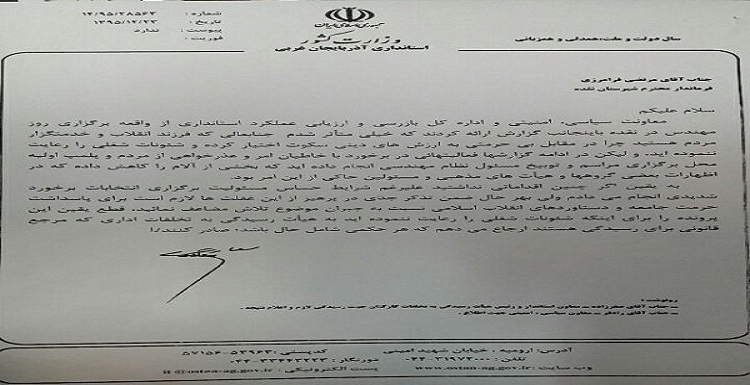 شماره : ۱۴/۹۵/۲۸۵۶۳
تاریخ : ۱۳۹۵/۱۲/۲۳
پیوست : ندارد
فوریت :
جمهوری اسلامی ایران
وزارت کشور
استانداری آذربایجان غربی
سال دولت و ملت، همدلی و همزبانی
جناب آقای مرتضی فرامرزی
فرماندار محترم شهرستان نقده
سلام علیکم
معاونت سیاسی، امنیتی و اداره کل بازرسی و ارزیابی عملکرد استانداری از واقعه برگزاری روز
مهندس در نقده باینجانب گزارش ارائه کردند که خیلی متأثر شدم جنابعالی که فرزند انقلاب و خدمتگزار
مردم هستید چرا در مقابل بی حرمتی به ارزش های دینی سکوت اختیار کرده و شئونات شغلی را رعایت
ننموده اید، و لیکن در ادامه گزارشها فعالیتهائی در برخورد با خاطیان امر و عذرخواهی از مردم و پلمپ اولیه
محل برگزاری مراسم و توبیخ مسئول نظام مهندسی انجام داده اید که بخشی از آلام را کاهش داده که در
اظهارات بعضی گروهها و هیأت های مذهبی و مسئولین حاکی از این امر بود.
به یقین اگر چنین اقداماتی نداشتید علیرغم شرایط حساس مسئولیت برگزاری انتخابات برخورد
شدیدی انجام می دادم ولی بهر حال ضمن تذکر جدی در پرهیز از این غفلت ها لازم است برای پاسداشت
حرمت جامعه و دستاوردهای انقلاب اسلامی نسبت به جبران موضوع تلاش مضاعف نمائید، قطع یقین این
پرونده را برای اینکه شئونات شغلی را رعایت ننموده اید به هیأت رسیدگی به تخلفات اداری که مرجع
قانونی برای رسیدگی هستند ارجاع می دهم که هر حکمی شامل حال باشد، صادر کنند./
رونوشت :
ـ جناب آقای صفرزاده ـ معاون استاندار و رئیس هیأت رسیدگی به تخلفات کارکنان جهت رسیدگی لازم و اعلام نتیجه.
ـ جناب آقای ـ معاون سیاسی، امنیتی جهت اطلاع.
آدرس: ارومیه ، خیابان شهید امینی
کدپستی: ۵۳۹۶۳-۵۷۱۵۶
تلفن : ۳۱۹۷۲۰۰۰-۰۴۴
دورنگار: ۳۳۴۶۲۳۲۳-۰۴۴
وب سایت : www.ostan-ag.gov.ir
پست الکترونیکی : it@ostan-ag.gov.ir